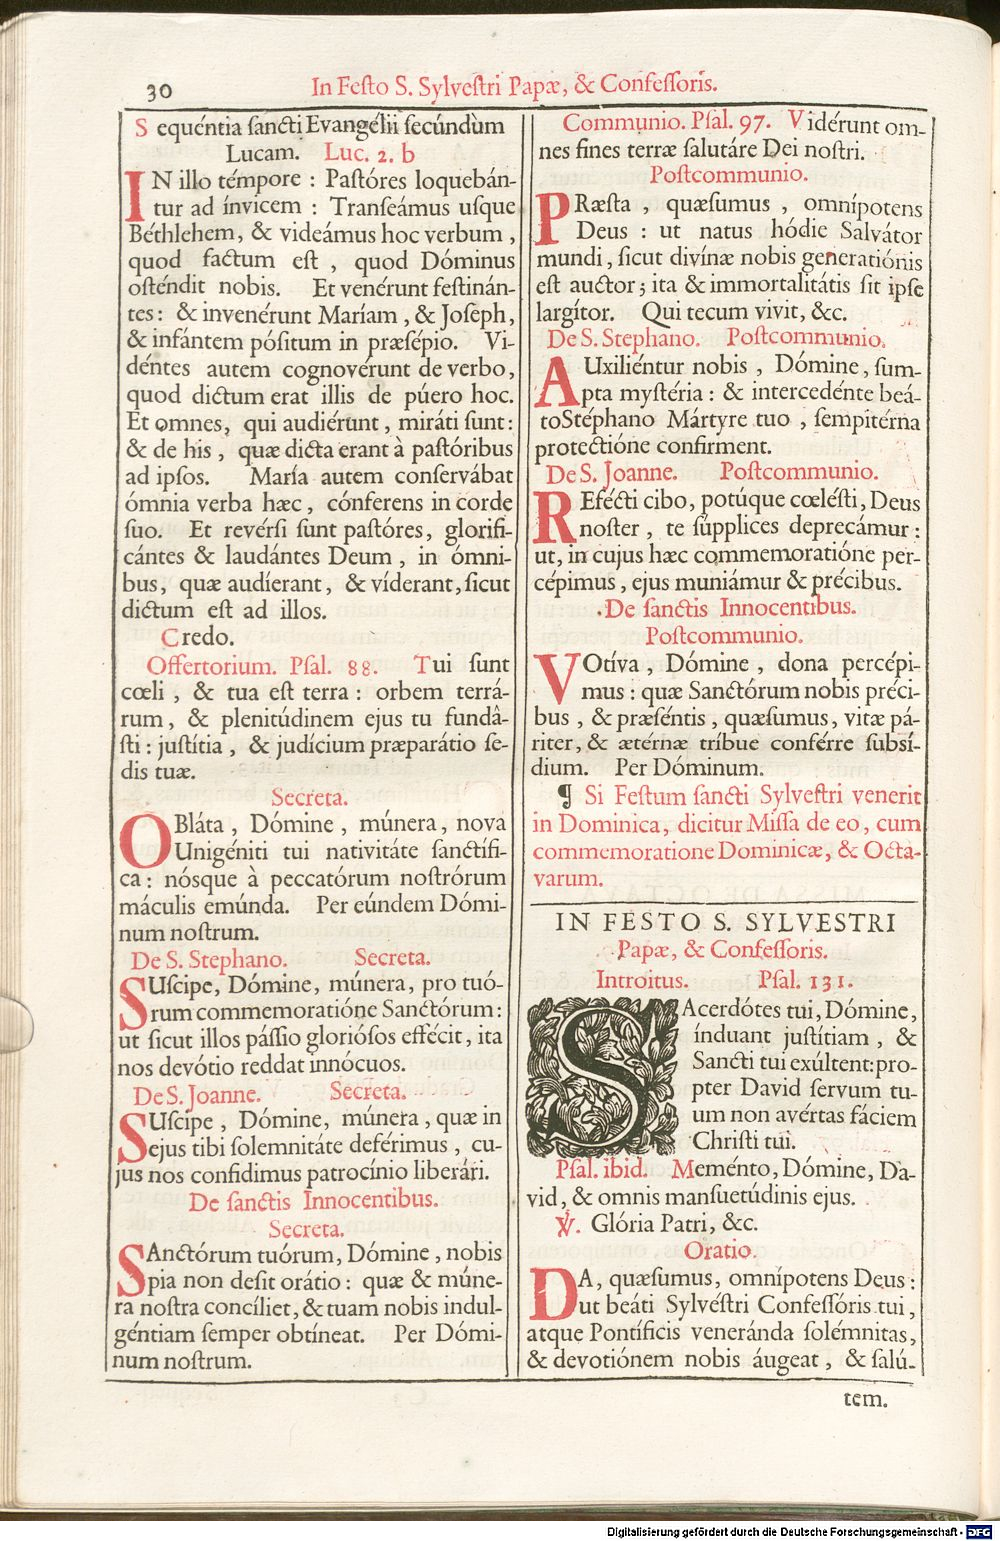 30 In Feſto S. Sylveſtri Papæ, & Confeſſoris.
Sequéntia ſancti Evangélii ſecúndùm
Lucam. Luc. 2. b
IN illo témpore : Paſtóres loquebán-
tur ad ínvicem : Tranſeámus uſque
Béthlehem, & videámus hoc verbum,
quod factum eſt, quod Dóminus
oſténdit nobis. Et venérunt feſtinán-
tes: & invenérunt Maríam, & Joſeph,
& infántem póſitum in præſépio. Vi-
déntes autem cognovérunt de verbo,
quod dictum erat illis de púero hoc.
Et omnes, qui audiérunt, miráti ſunt:
& de his, quæ dicta erant à paſtóribus
ad ipſos. María autem conſervábat
ómnia verba hæc, cónferens in corde
ſuo. Et revérſi ſunt paſtóres, glorifi-
cántes & laudántes Deum, in ómni-
bus, quæ audíerant, & víderant, ſicut
dictum eſt ad illos.
Credo.
Offertorium. Pſal. 88. Tui ſunt
cœli, & tua eſt terra: orbem terrá-
rum, & plenitúdinem ejus tu fundâ-
ſti: juſtítia, & judícium præparátio ſe-
dis tuæ.
Secreta.
OBláta, Dómine, múnera, nova
Unigéniti tui nativitáte ſanctífi-
ca: nóſque à peccatórum noſtrórum
máculis emúnda. Per eúndem Dómi-
num noſtrum.
De S. Stephano. Secreta.
SUſcipe, Dómine, múnera, pro tuó-
rum commemoratióne Sanctórum:
ut ſicut illos páſſio glorióſos effécit, ita
nos devótio reddat innócuos.
De S. Joanne. Secreta.
SUſcipe, Dómine, múnera, quæ in
ejus tibi ſolemnitáte deférimus, cu-
jus nos confidimus patrocínio liberári.
De ſanctis Innocentibus.
Secreta.
SAnctórum tuórum, Dómine, nobis
pia non deſit orátio: quæ & múne-
ra noſtra concíliet, & tuam nobis indul-
géntiam ſemper obtíneat. Per Dómi-
num noſtrum.
Communio. Pſal. 97. Vidérunt om-
nes fines terræ ſalutáre Dei noſtri.
Poſtcommunio.
PRæſta, quæſumus, omnípotens
Deus: ut natus hódie Salvátor
mundi, ſicut divínæ nobis generatiónis
eſt auctor; ita & immortalitátis ſit ipſe
largítor. Qui tecum vivit, &c.
De S. Stephano. Poſtcommunio.
AUxiliéntur nobis, Dómine, ſum-
pta myſtéria: & intercedénte beá-
to Stéphano Mártyre tuo, ſempitérna
protectióne confirment.
De S. Joanne. Poſtcommunio.
REfécti cibo, potúque cœléſti, Deus
noſter, te ſúpplices deprecámur:
ut, in cujus hæc commemoratióne per-
cépimus, ejus muniámur & précibus.
De ſanctis Innocentibus.
Poſtcommunio.
VOtíva, Dómine, dona percépi-
mus: quæ Sanctórum nobis préci-
bus, & præſéntis, quæſumus, vitæ pá-
riter, & ætérnæ tríbue conférre ſubsí-
dium. Per Dóminum.
¶ Si Feſtum ſancti Sylveſtri venerit
in Dominica, dicitur Miſſa de eo, cum
commemoratione Dominicæ, & Octa-
varum.
IN FESTO S. SYLVESTRI
Papæ, & Confeſſoris.
Introitus. Pſal. 131.
SAcerdótes tui, Dómine,
índuant juſtítiam, &
Sancti tui exúltent: pro-
pter David ſervum tu-
um non avértas fáciem
Chriſti tui.
Pſal. ibid. Meménto, Dómine, Da-
vid, & omnis manſuetúdinis ejus.
℣. Glória Patri, &c.
Oratio.
DA, quæſumus, omnípotens Deus:
ut beáti Sylvéſtri Confeſſóris tui,
atque Pontíficis veneránda ſolémnitas,
& devotiónem nobis áugeat, & ſalú-
tem.
Digitalisierung gefördert durch die Deutsche Forschungsgemeinschaft - DFG